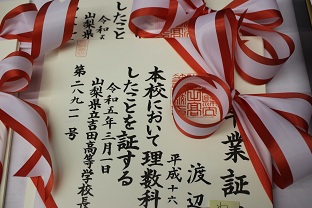 業証
渡辺
平成十六
本校において理数科
したことを証する
令和五年三月一日
山梨県立吉田高等学校長
第二八九一号
したこと
令和五
山梨県